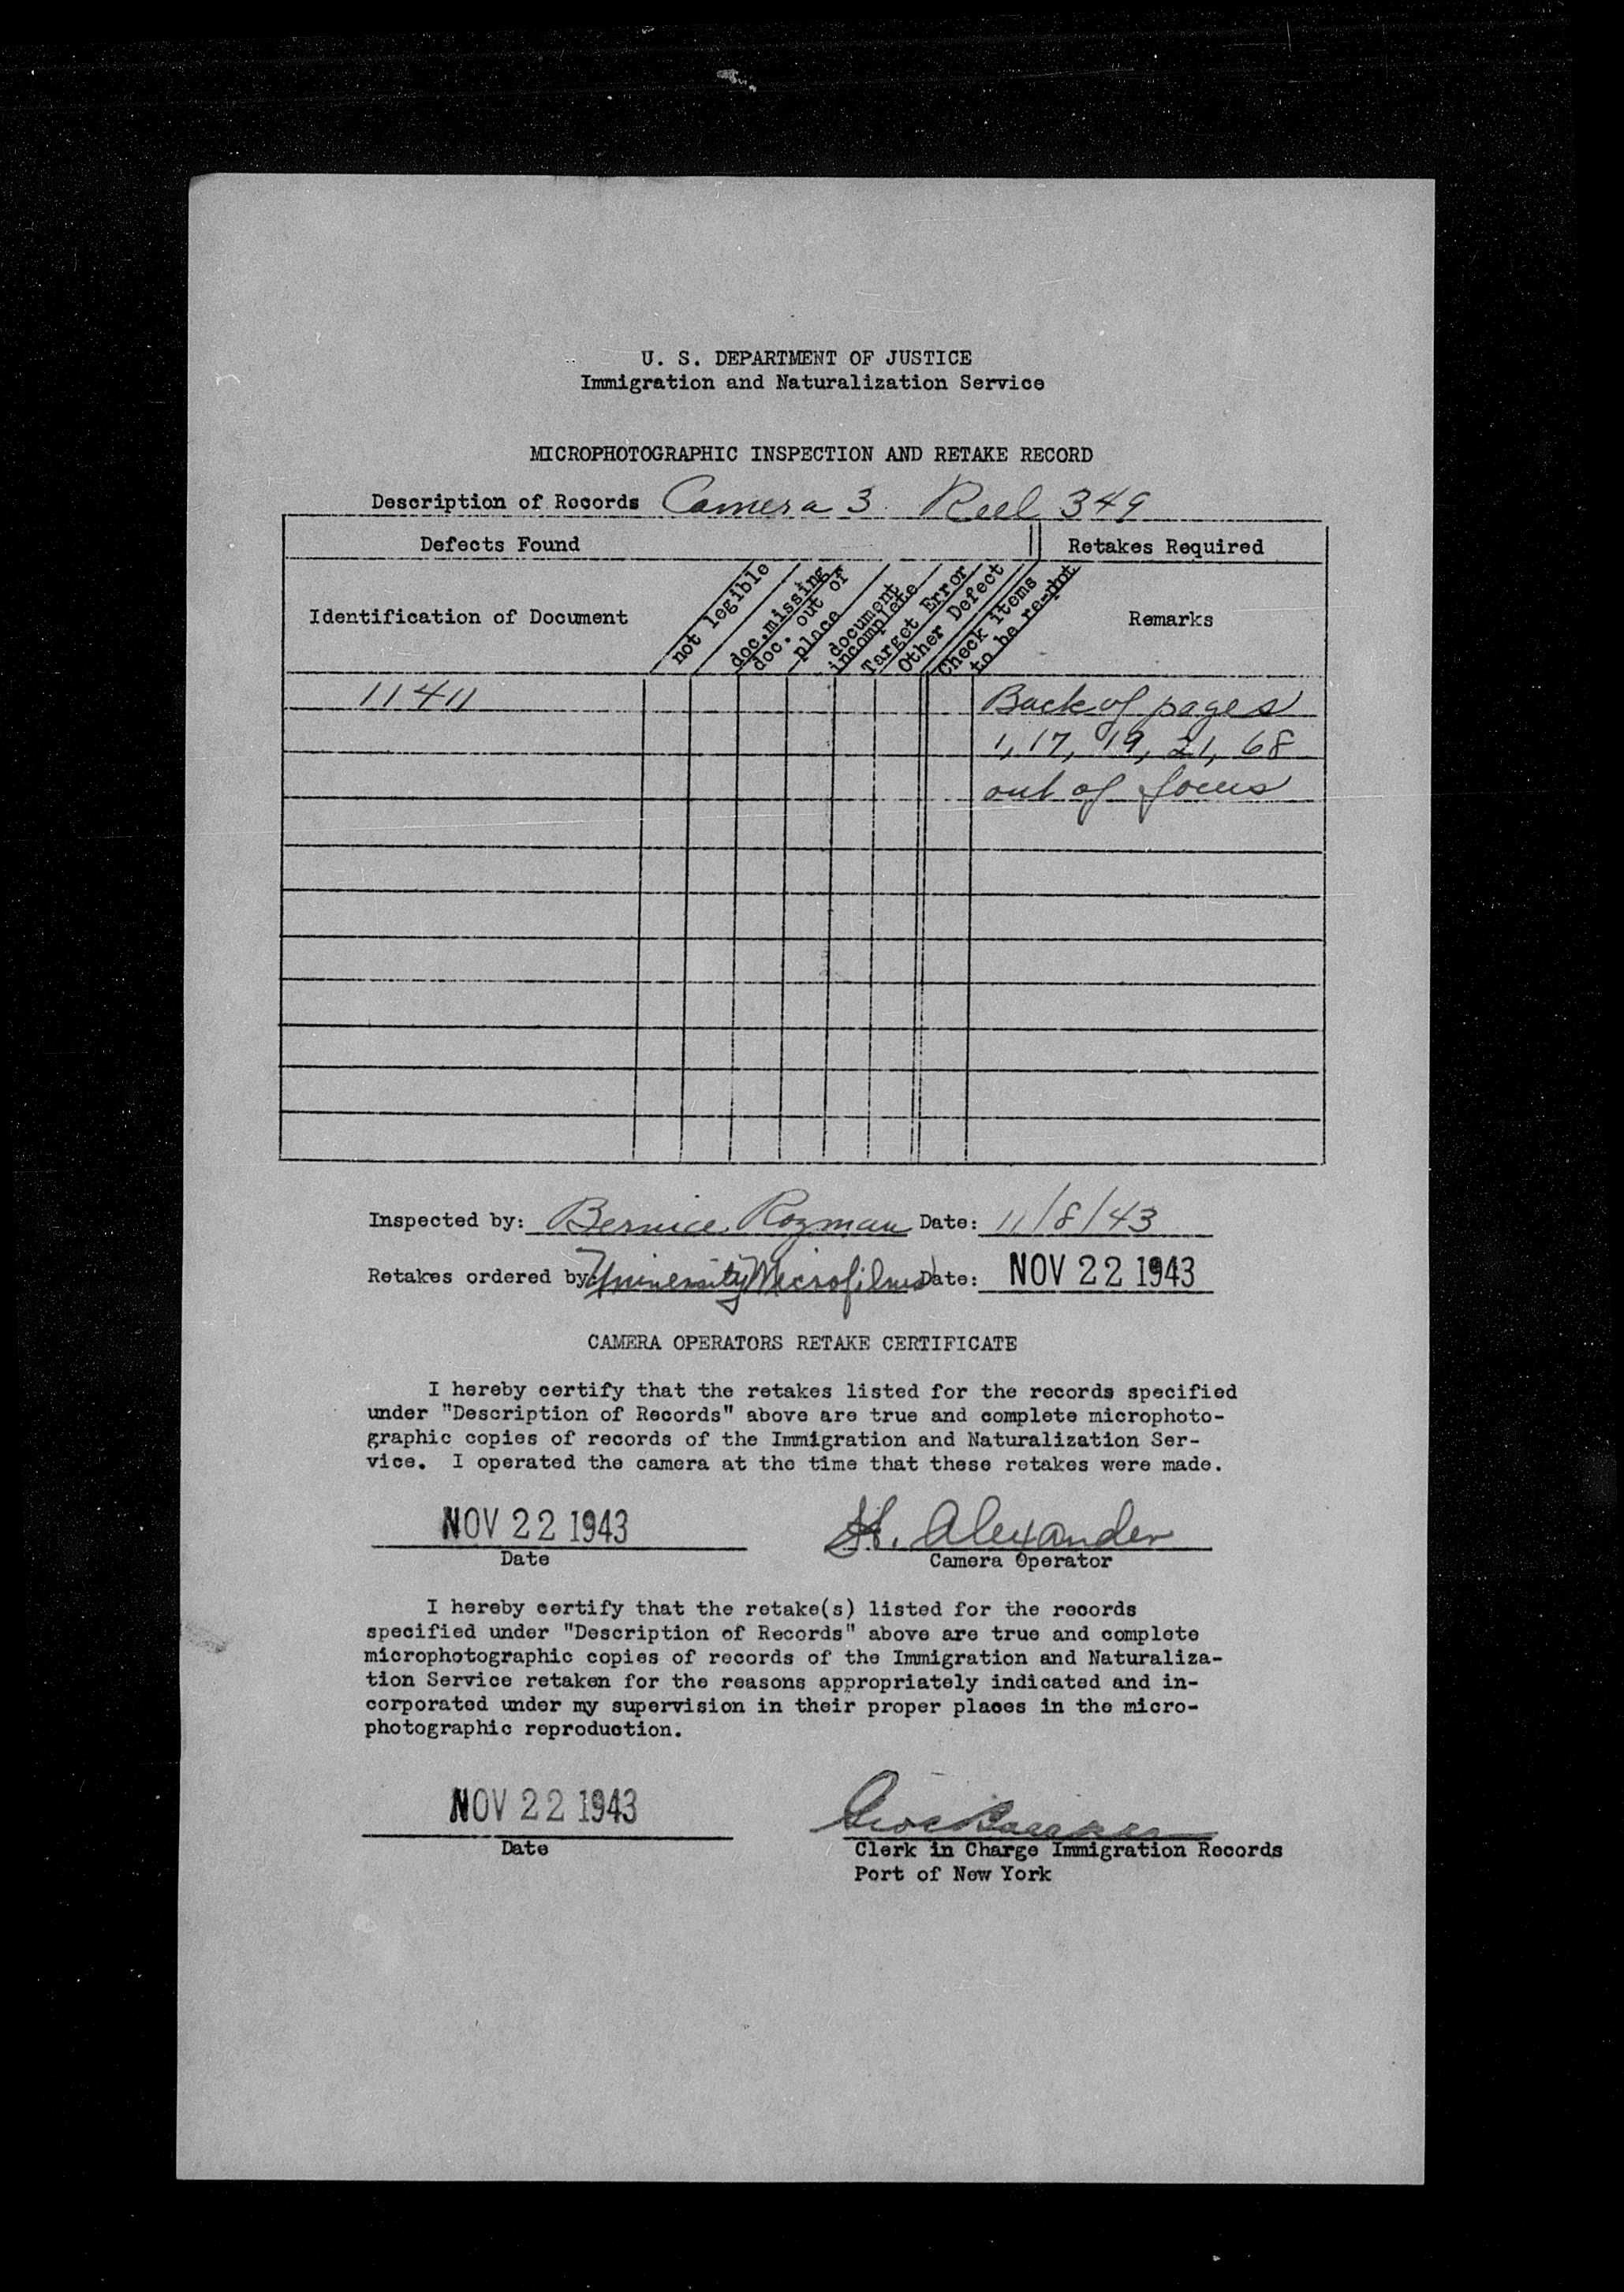 U. S. DEPARTMENT OF JUSTICE
Immigration and Naturalization Service
MICROPHOTOGRAPHIC INSPECTION AND RETAKE RECORD
Description of Records Camera 3. Reel 349
Defects Found
Retakes Required
Identification of Document
not legible
doc. missing
doc. out of
place
document
incomplete
Target Error
Other Defect
Check items
to be re-phot
Remarks
11411 Back of pages
1, 17, 19, 21, 68
out of focus
Inspected by: Bernice Rozman Date: 11/8/43
Retakes ordered by: University Microfilms Date: NOV 22 1943
CAMERA OPERATORS RETAKE CERTIFICATE
I hereby certify that the retakes listed for the records specified
under "Description of Records" above are true and complete microphoto-
graphic copies of records of the Immigration and Naturalization Ser-
vice. I operated the camera at the time that these retakes were made.
NOV 22 1943 H. Alexander
Date Camera Operator
I hereby certify that the retake(s) listed for the records
specified under "Description of Records" above are true and complete
microphotographic copies of records of the Immigration and Naturaliza-
tion Service retaken for the reasons appropriately indicated and in-
corporated under my supervision in their proper places in the micro-
photographic reproduction.
NOV 22 1943
Date Clerk in Charge Immigration Records
Port of New York